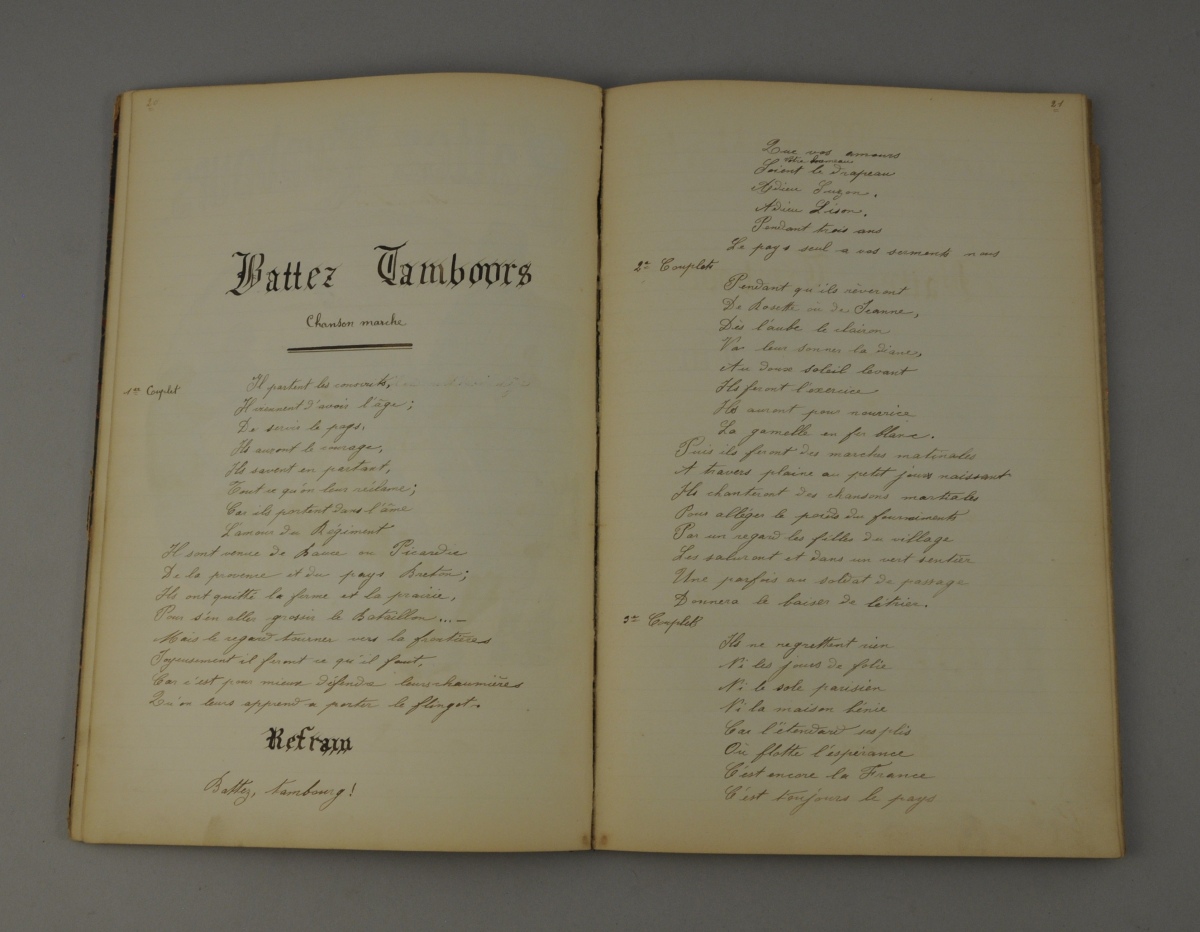 20
Battez Tambours
Chanson marche
1er Couplet
Il partent les conscrits,
Il viennent d'avoir l'âge;
De servir le pays,
Ils auront le courage,
Ils savent en partant,
Tout ce qu'on leur réclame;
Car ils portent dans l'âme
L'amour du Régiment
Il sont venue de Bauce ou Picardie
De la provence et du pays Breton;
Ils ont quitté la ferme et la prairie,
Pour s'en aller grossir le Bataillon...–
Mais le regard tourner vers la frontières
Joyeusement il feront ce qu'il faut,
Car c'est pour mieux défendre leurs chaumières
Qu'on leurs apprend a porter le flingot.
Refrain
Battez, tambourg!
21
Que vos amours
Soient le drapeau
Adieu Suzon.
Adieu Lison.
Pendant trois ans
Le pays seul a vos serments
2me Couplets
Pendant qu'ils rêveront
De Rosette ou de Jeanne,
Dès l'aube le clairon
Va leur sonner la diane,
Au doux soleil levant
Ils feront l'exercice
Ils auront pour nourrice
La gamelle en fer blanc.
Puis ils feront des marches matinales
A travers plaine au petit jour naissant
Ils chanteront des chansons martiales
Pour alléger le poids du fourniments
Par un regard les filles du village
Les salueront et dans un vert sentier
Une parfois au soldat de passage
Donnera le baiser de l'étrier.
3me Couplets
Ils ne regrettent rien
Ni les jours de folie
Ni le sole parisien
Ni la maison bénie
Car l'étendard ses plis
Où flotte l'espérance
C'est encore la France
C'est toujours le pays